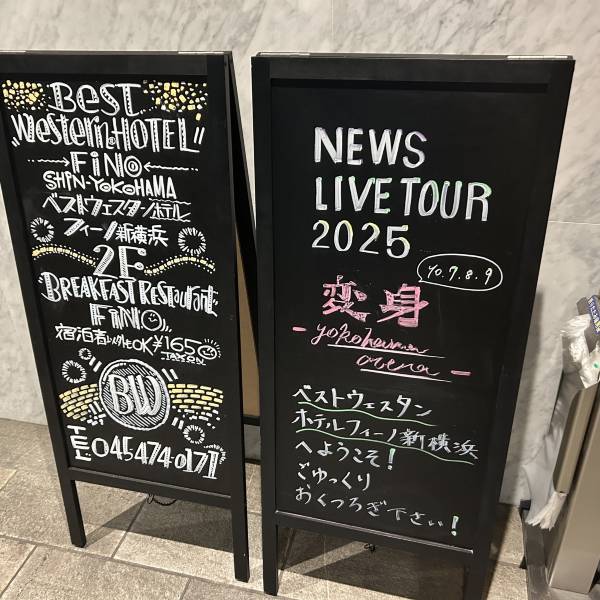 BEST
Western HOTEL
FINO
SHIN-YOKOHAMA
ベストウェスタンホテル
フィーノ新横浜
2F
BREAKFAST Restaurant
FINO
宿泊者以外もOK ¥1650
BW
TEL: 045-474-0177
NEWS
LIVE TOUR
2025
変身
yokohama
arena
ベストウェスタン
ホテルフィーノ新横浜
へようこそ!
ごゆっくり
おくつろぎ下さい!